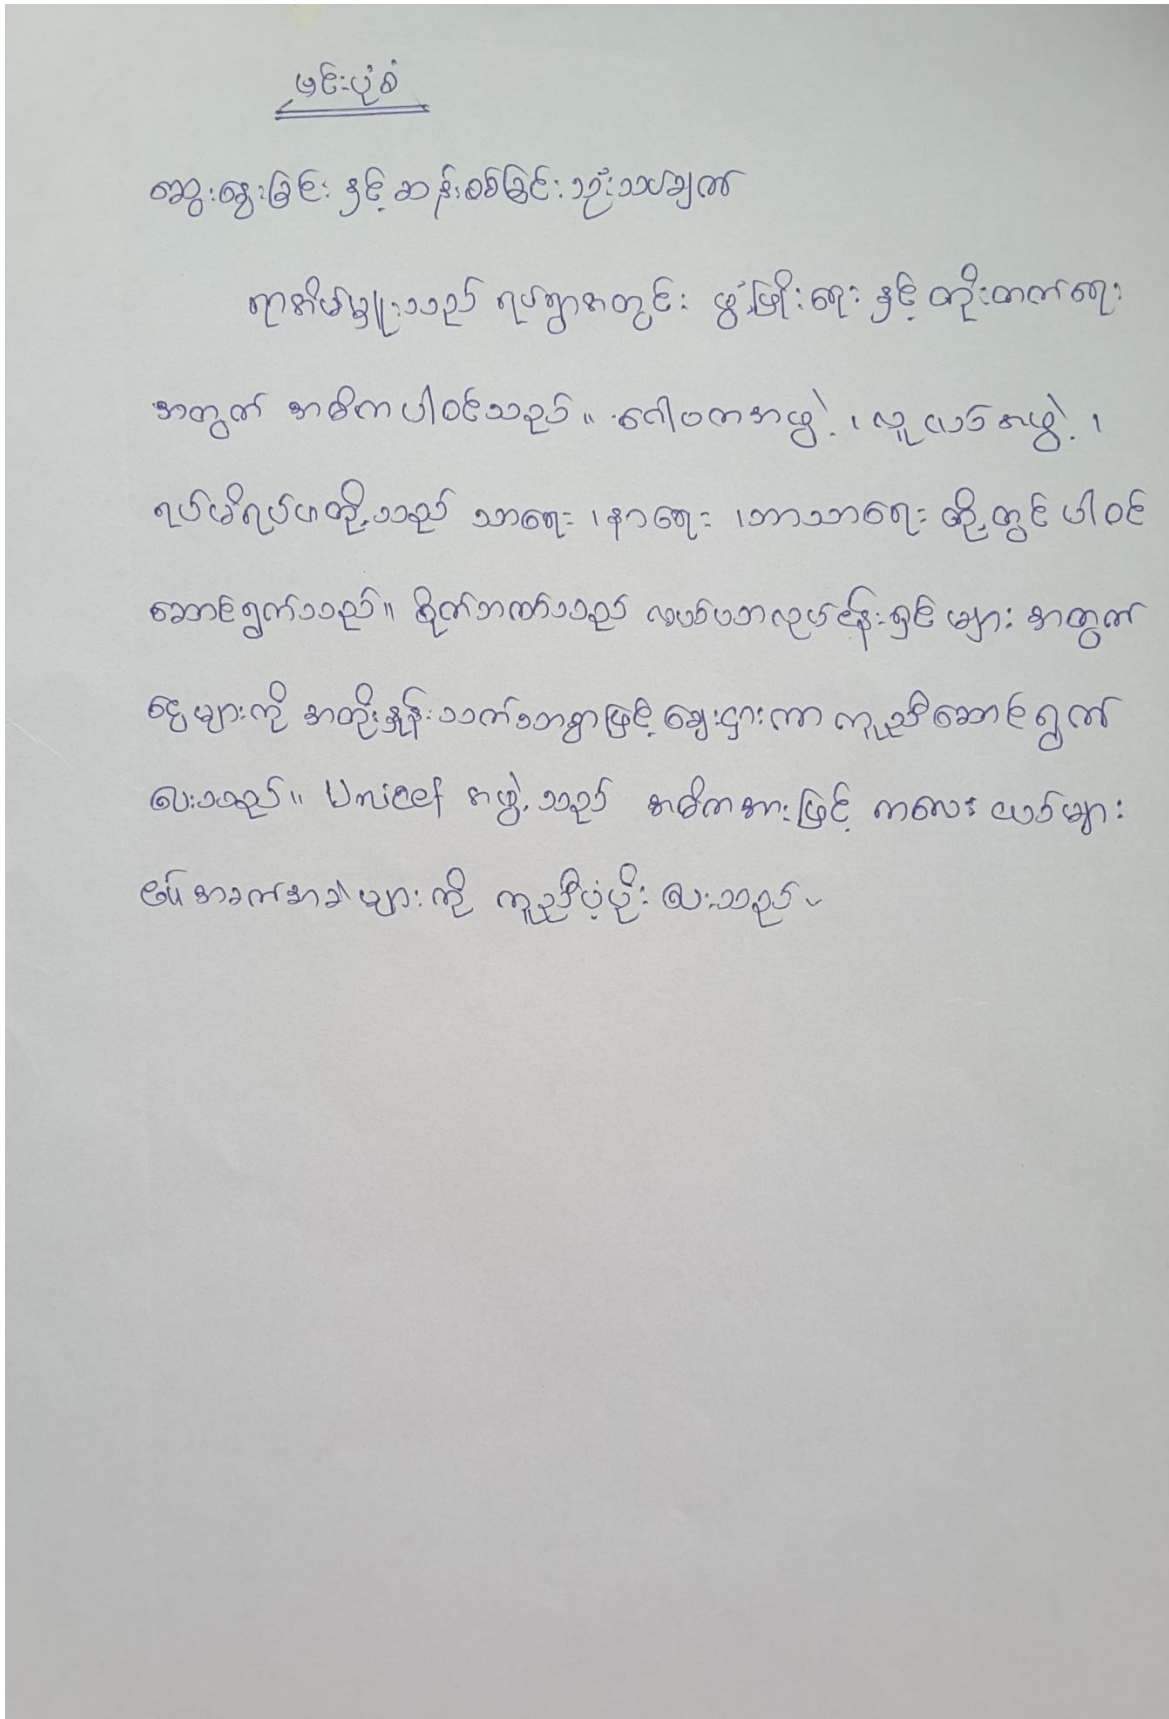 ဖင်းပုံစံ
ဆွေးနွေးခြင်း နှင့် ဆန်းစစ်ခြင်း သုံးသပ်ချက်
ရာအိမ်မှူးသည် ရပ်ရွာအတွင်း ဖွံ့ဖြိုးရေး နှင့် တိုးတက်ရေး
အတွက် အဓိကပါဝင်သည်။ ဂေါပကအဖွဲ့၊ လူငယ်အဖွဲ့၊
ရပ်မိရပ်ဖတို့သည် သာရေး၊ နာရေး၊ ဘာသာရေး တို့တွင် ပါဝင်
ဆောင်ရွက်သည်။ စိုက်ဘဏ်သည် လယ်ယာလုပ်ငန်းရှင်များ အတွက်
ငွေများကို အတိုးနှုန်းသက်သာစွာဖြင့် ချေးငှားကာ ကူညီဆောင်ရွက်
ပေးသည်။ Unicef အဖွဲ့သည် အဓိကအားဖြင့် ကလေးငယ်များ
၏ အခက်အခဲများကို ကူညီပံ့ပိုး ပေးသည်။